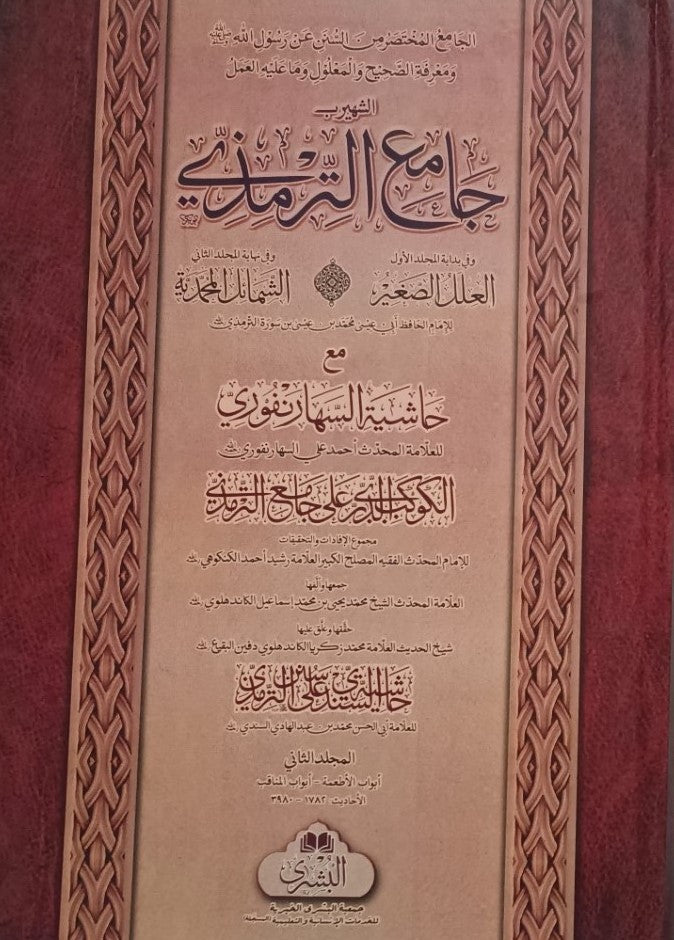 الجامع المختصر من السنن عن رسول الله ﷺ
ومعرفة الصحيح والمعلول وما عليه العمل
الشهير ب
جامع الترمذي
وفي بداية المجلد الأول
العلل الصغير
وفي نهاية المجلد الثاني
الشمائل المحمدية
للإمام الحافظ أبي عيسى محمد بن عيسى بن سورة الترمذي
مع
حاشية السهارنفوري
للعلامة المحدث أحمد علي السهارنفوري
الكوكب الدري على جامع الترمذي
مجموع الإفادات والتحقيقات
للإمام المحدث الفقيه المصلح الكبير العلامة رشيد أحمد الكنكوهي
جمعها وألفها
العلامة المحدث الشيخ محمد يحيى بن محمد إسماعيل الكاندهلوي
حققها وعلق عليها
شيخ الحديث العلامة محمد زكريا الكاندهلوي دفين البقيع
حاشية السندي على سنن الترمذي
للعلامة أبي الحسن محمد بن عبد الهادي السندي
المجلد الثاني
أبواب الأطعمة - أبواب المناقب
الأحاديث: ١٧٨٢ - ٣٩٨٠
البشرى
جمعية البشرى الخيرية
للخدمات الإنسانية والتعليمية (المسجلة)